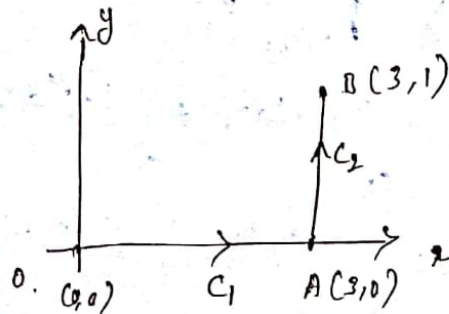 y
B (3,1)
C₂
O. (0,0) C₁ A (3,0) x